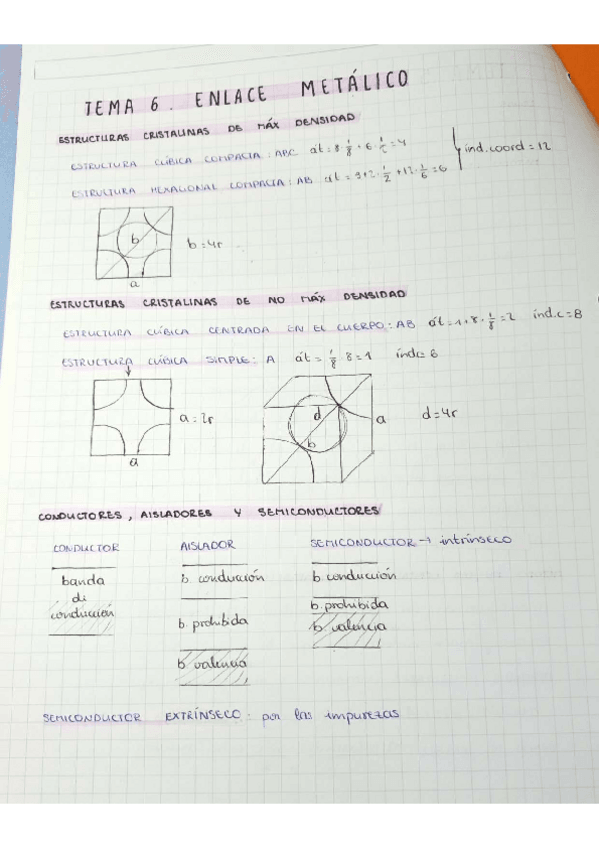 TEMA 6. ENLACE METÁLICO
ESTRUCTURAS CRISTALINAS DE MÁX DENSIDAD
ESTRUCTURA CÚBICA COMPACTA: ABC át = 8·1/8 + 6·1/2 = 4
ind.coord = 12
ESTRUCTURA HEXAGONAL COMPACTA: AB át = 3+2·1/2+12·1/6=6
b
b = 4r
a
ESTRUCTURAS CRISTALINAS DE NO MÁX DENSIDAD
ESTRUCTURA CÚBICA CENTRADA EN EL CUERPO: AB át = 1+8·1/8=2 índ.c=8
ESTRUCTURA CÚBICA SIMPLE: A át = 1/8·8=1 índc 6
a = 2r
a
d
b
a
d=4r
CONDUCTORES, AISLADORES Y SEMICONDUCTORES
CONDUCTOR AISLADOR SEMICONDUCTOR → intrínseco
banda
di
conducción
b conducción
b prohibida
b valencia
b conducción
b. prohibida
b. valencia
SEMICONDUCTOR EXTRÍNSECO: por las impurezas